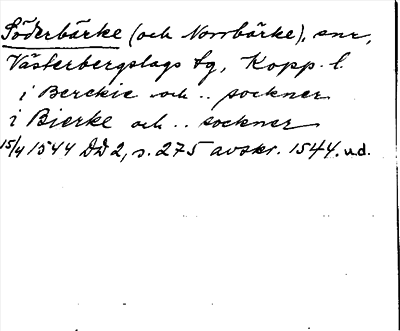 Söderbärke (och Norrbärke), snr,
Västerbergslags tg, Kopp. l.
i Berckie och .. sockner
i Bierke och .. sockner
15/4 1544 DD 2, s. 275 avskr. 1544. u.d.